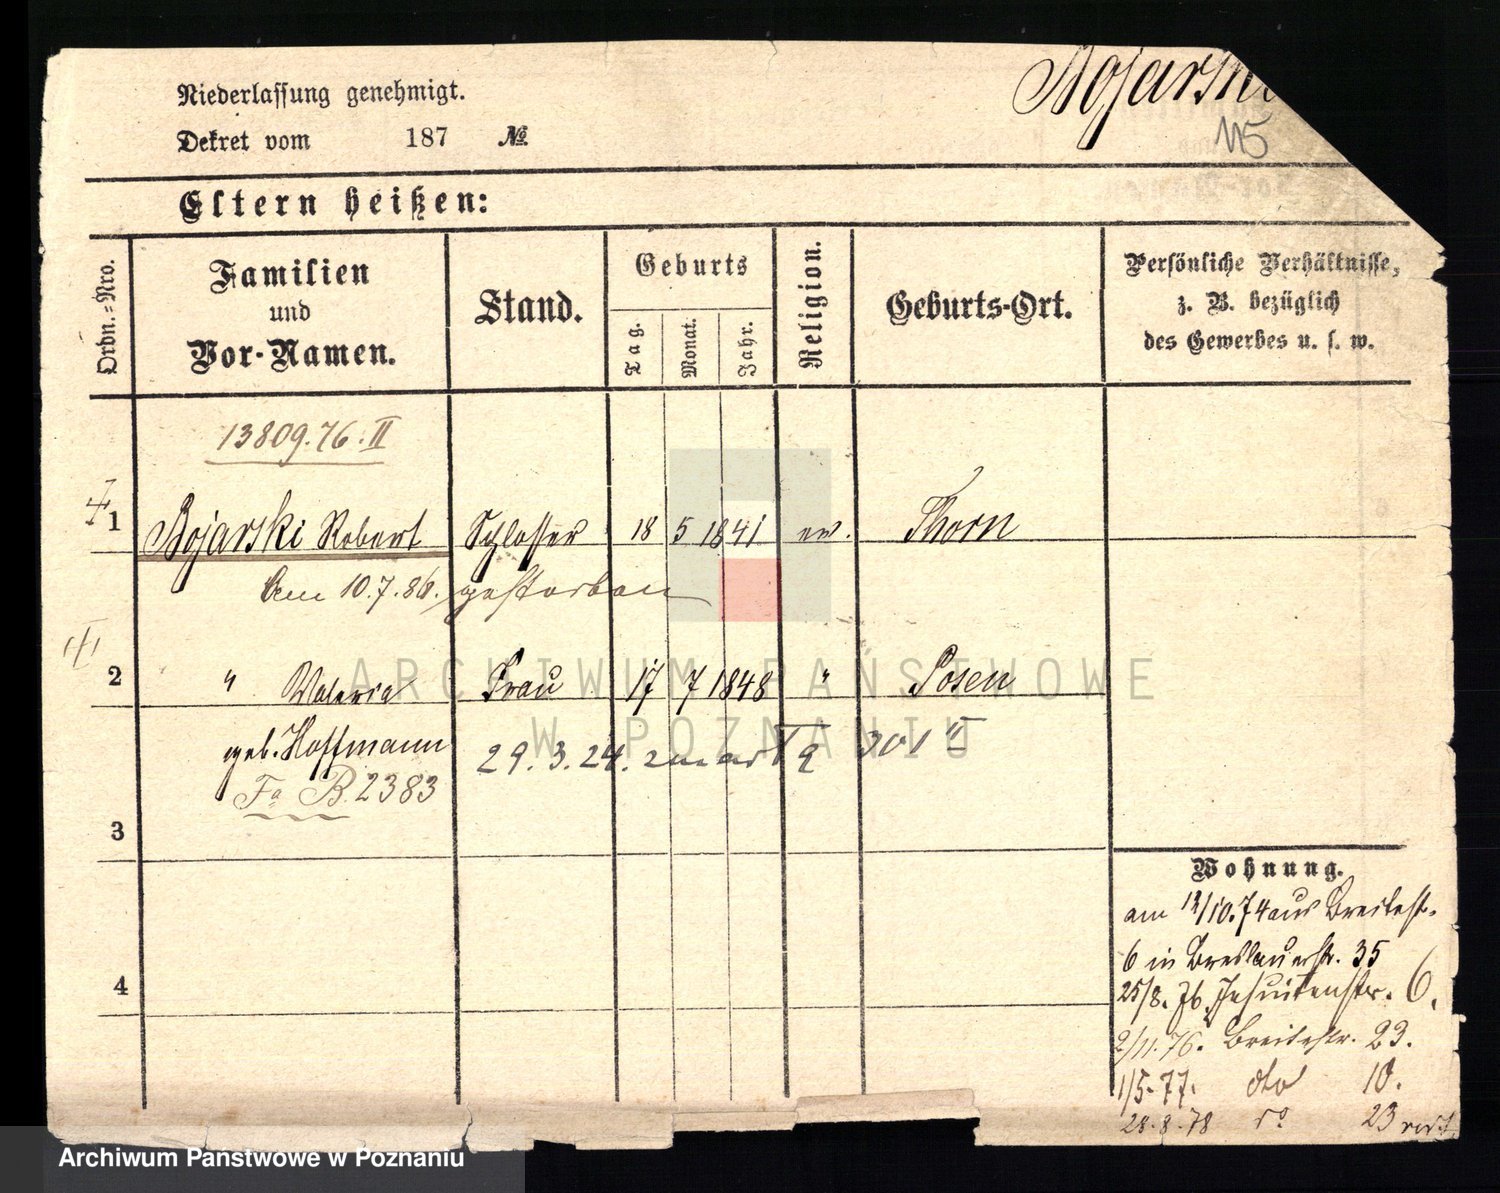 Bojarski
Niederlassung genehmigt.
Dekret vom 187 No
115
Eltern heißen:
Ordn.-Nro.
Familien und Vor-Namen.
Stand.
Geburts
Tag. Monat. Jahr.
Religion.
Geburts-Ort.
Persönliche Verhältnisse,
z. B. bezüglich
des Gewerbes u. s. w.
13809.76.II
1 Bojarski Robert Schlosser 18 5 1841 ev. Thorn
Am 10.7.86. gestorben
2 " Valeria Frau 17 7 1848 " Posen
geb. Hoffmann
29.3.24. zmarła 301 II
Fa B. 2383
3
4
Wohnung.
am 12/10.74 aus Breitestr.
6 in Breslauerstr. 35
25/8.76. Jesuitenstr. 6.
2/11.76. Breitestr. 23.
1/5.77. dto 10.
28.8.78 do 23
ARCHIWUM PAŃSTWOWE
W POZNANIU
Archiwum Państwowe w Poznaniu